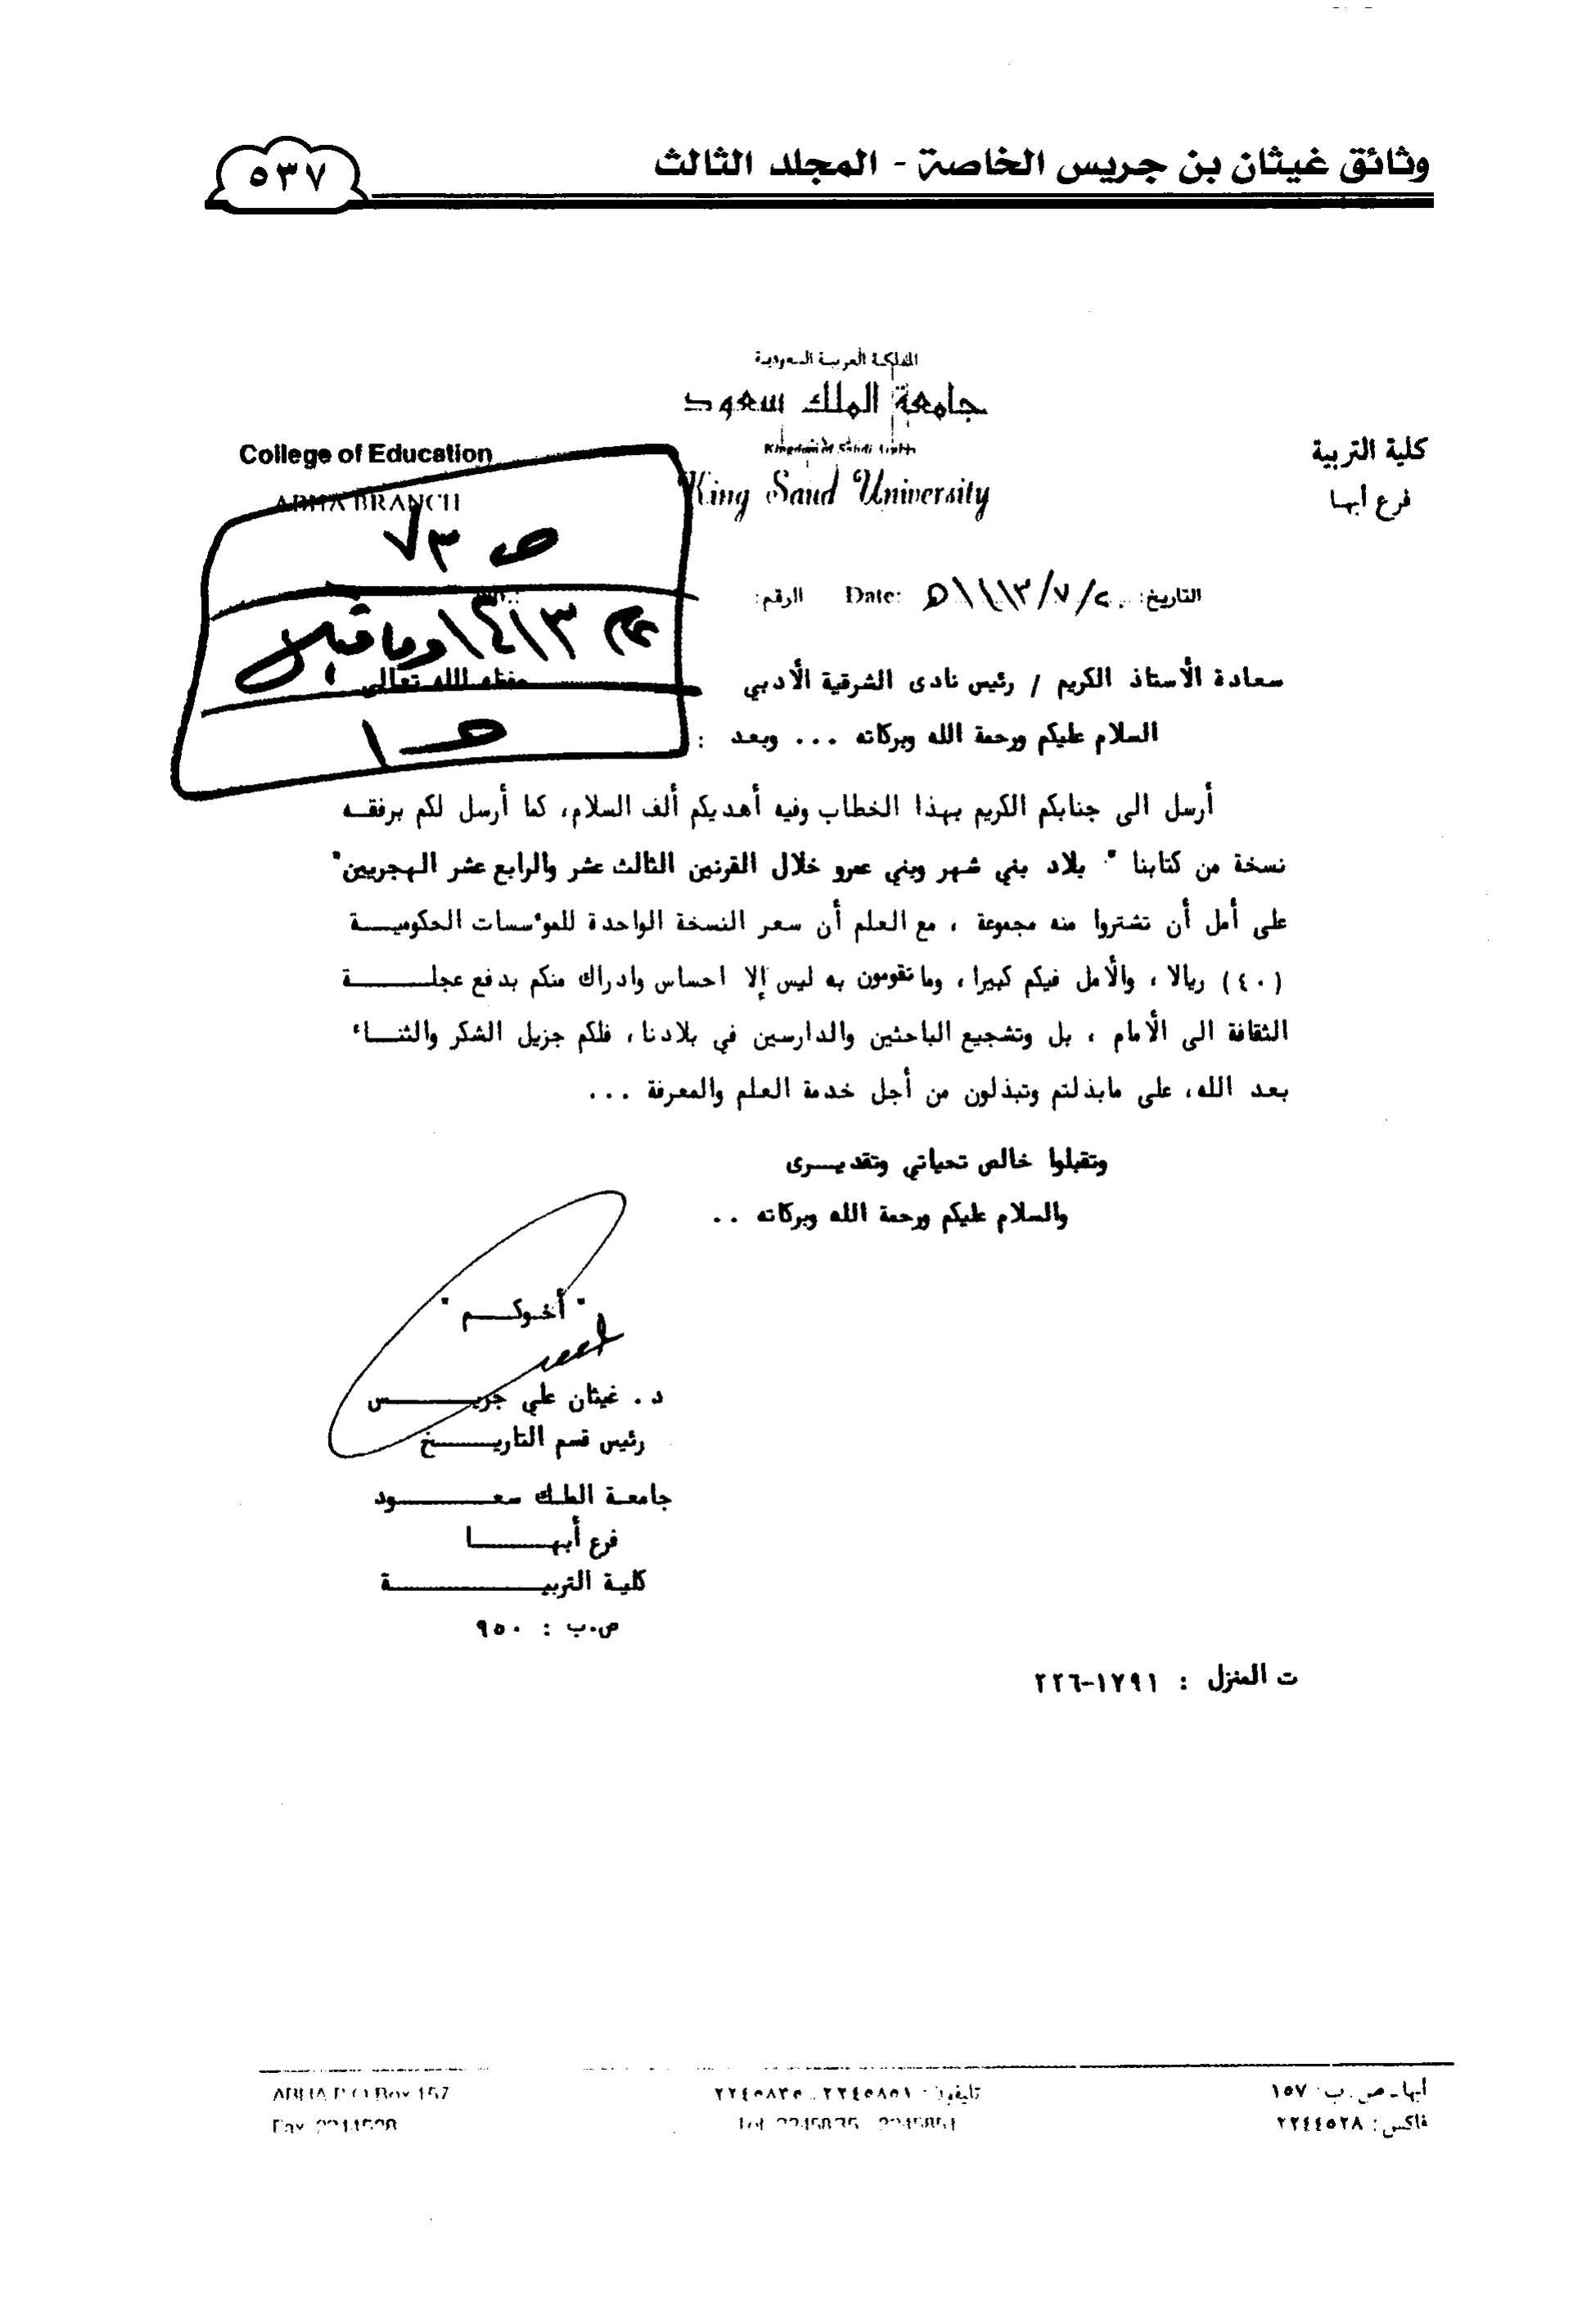 وثائق غيثان بن جريس الخاصة - المجلد الثالث
٥٣٧
المملكة العربية السعودية
جامعة الملك سعود
Kingdom of Saudi Arabia
King Saud University
كلية التربية
فرع أبها
College of Education
ABHA BRANCH
ص ٧٣
عام ١٤١٣ وما قبل
ص ١
التاريخ: ٢٠/٧/١٤١٣هـ Date: الرقم:
سعادة الأستاذ الكريم / رئيس نادى الشرقية الأدبي حفظه الله تعالى
السلام عليكم ورحمة الله وبركاته ... وبعد :
أرسل الى جنابكم الكريم بهذا الخطاب وفيه أهديكم ألف السلام، كما أرسل لكم برفقــه
نسخة من كتابنا " بلاد بني شهر وبني عمرو خلال القرنين الثالث عشر والرابع عشر الهجريين"
على أمل أن تشتروا منه مجموعة ، مع العلم أن سعر النسخة الواحدة للموءسسات الحكوميــــة
(٤٠) ريالا ، والأمل فيكم كبيرا ، وماتقومون به ليس إلا احساس وادراك منكم بدفع عجلـــــــة
الثقافة الى الأمام ، بل وتشجيع الباحثين والدارسين في بلادنا ، فلكم جزيل الشكر والثنــــاء
بعد الله، على مابذلتم وتبذلون من أجل خدمة العلم والمعرفة ...
وتقبلوا خالص تحياتي وتقديـــرى
والسلام عليكم ورحمة الله وبركاته ..
" أخـوكــــم "
د . غيثان علي جريـــــــــس
رئيس قسم التاريـــــــخ
جامعـة الملك سعـــــــــــود
فرع أبهـــــــــا
كليـة التربيــــــــــــــــة
ص.ب : ٩٥٠
ت المنزل : ١٧٩١-٢٢٦
أبها - ص. ب: ١٥٧
فاكس: ٢٢٤٤٥٢٨
تليفون: ٢٢٤٥٨٥١ - ٢٢٤٥٨٣٥
Tel. 2245835 - 2245851
ABHA P.O.Box 157
Fax. 2244528